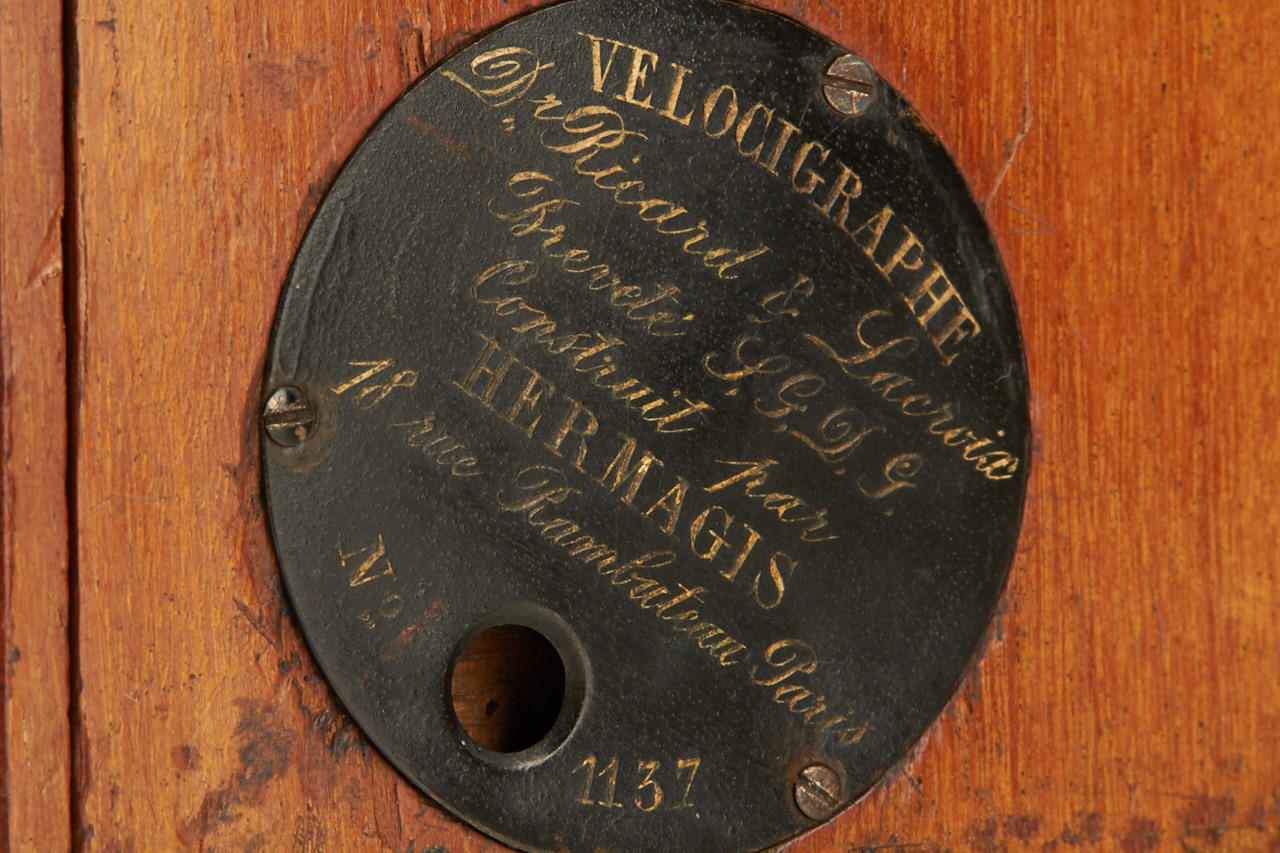 VELOCIGRAPHE
Dr Ricard & Lacroix
Breveté S.G.D.G.
Construit par
HERMAGIS
18 rue Rambuteau Paris
No 1137